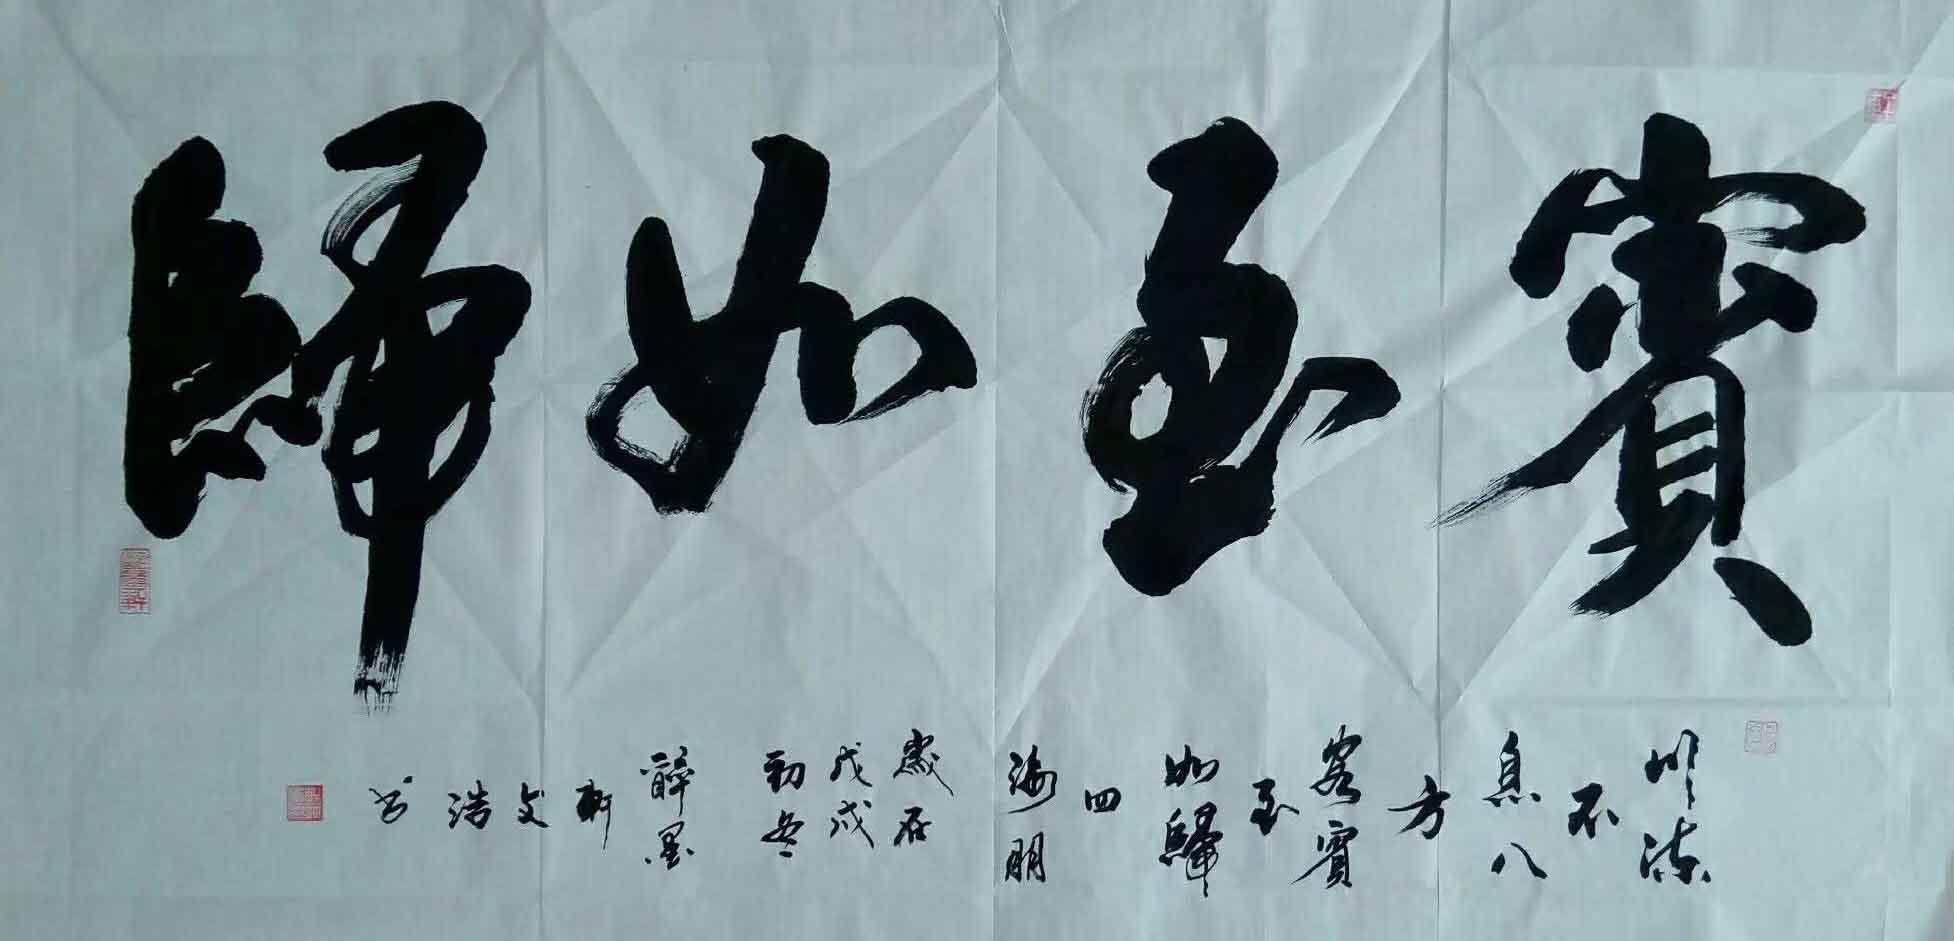 賓至如歸
川流
不
息八
方
客賓
至
如歸
四
海朋
歲在
戊戌
初冬
醉墨
軒
文
浩
书